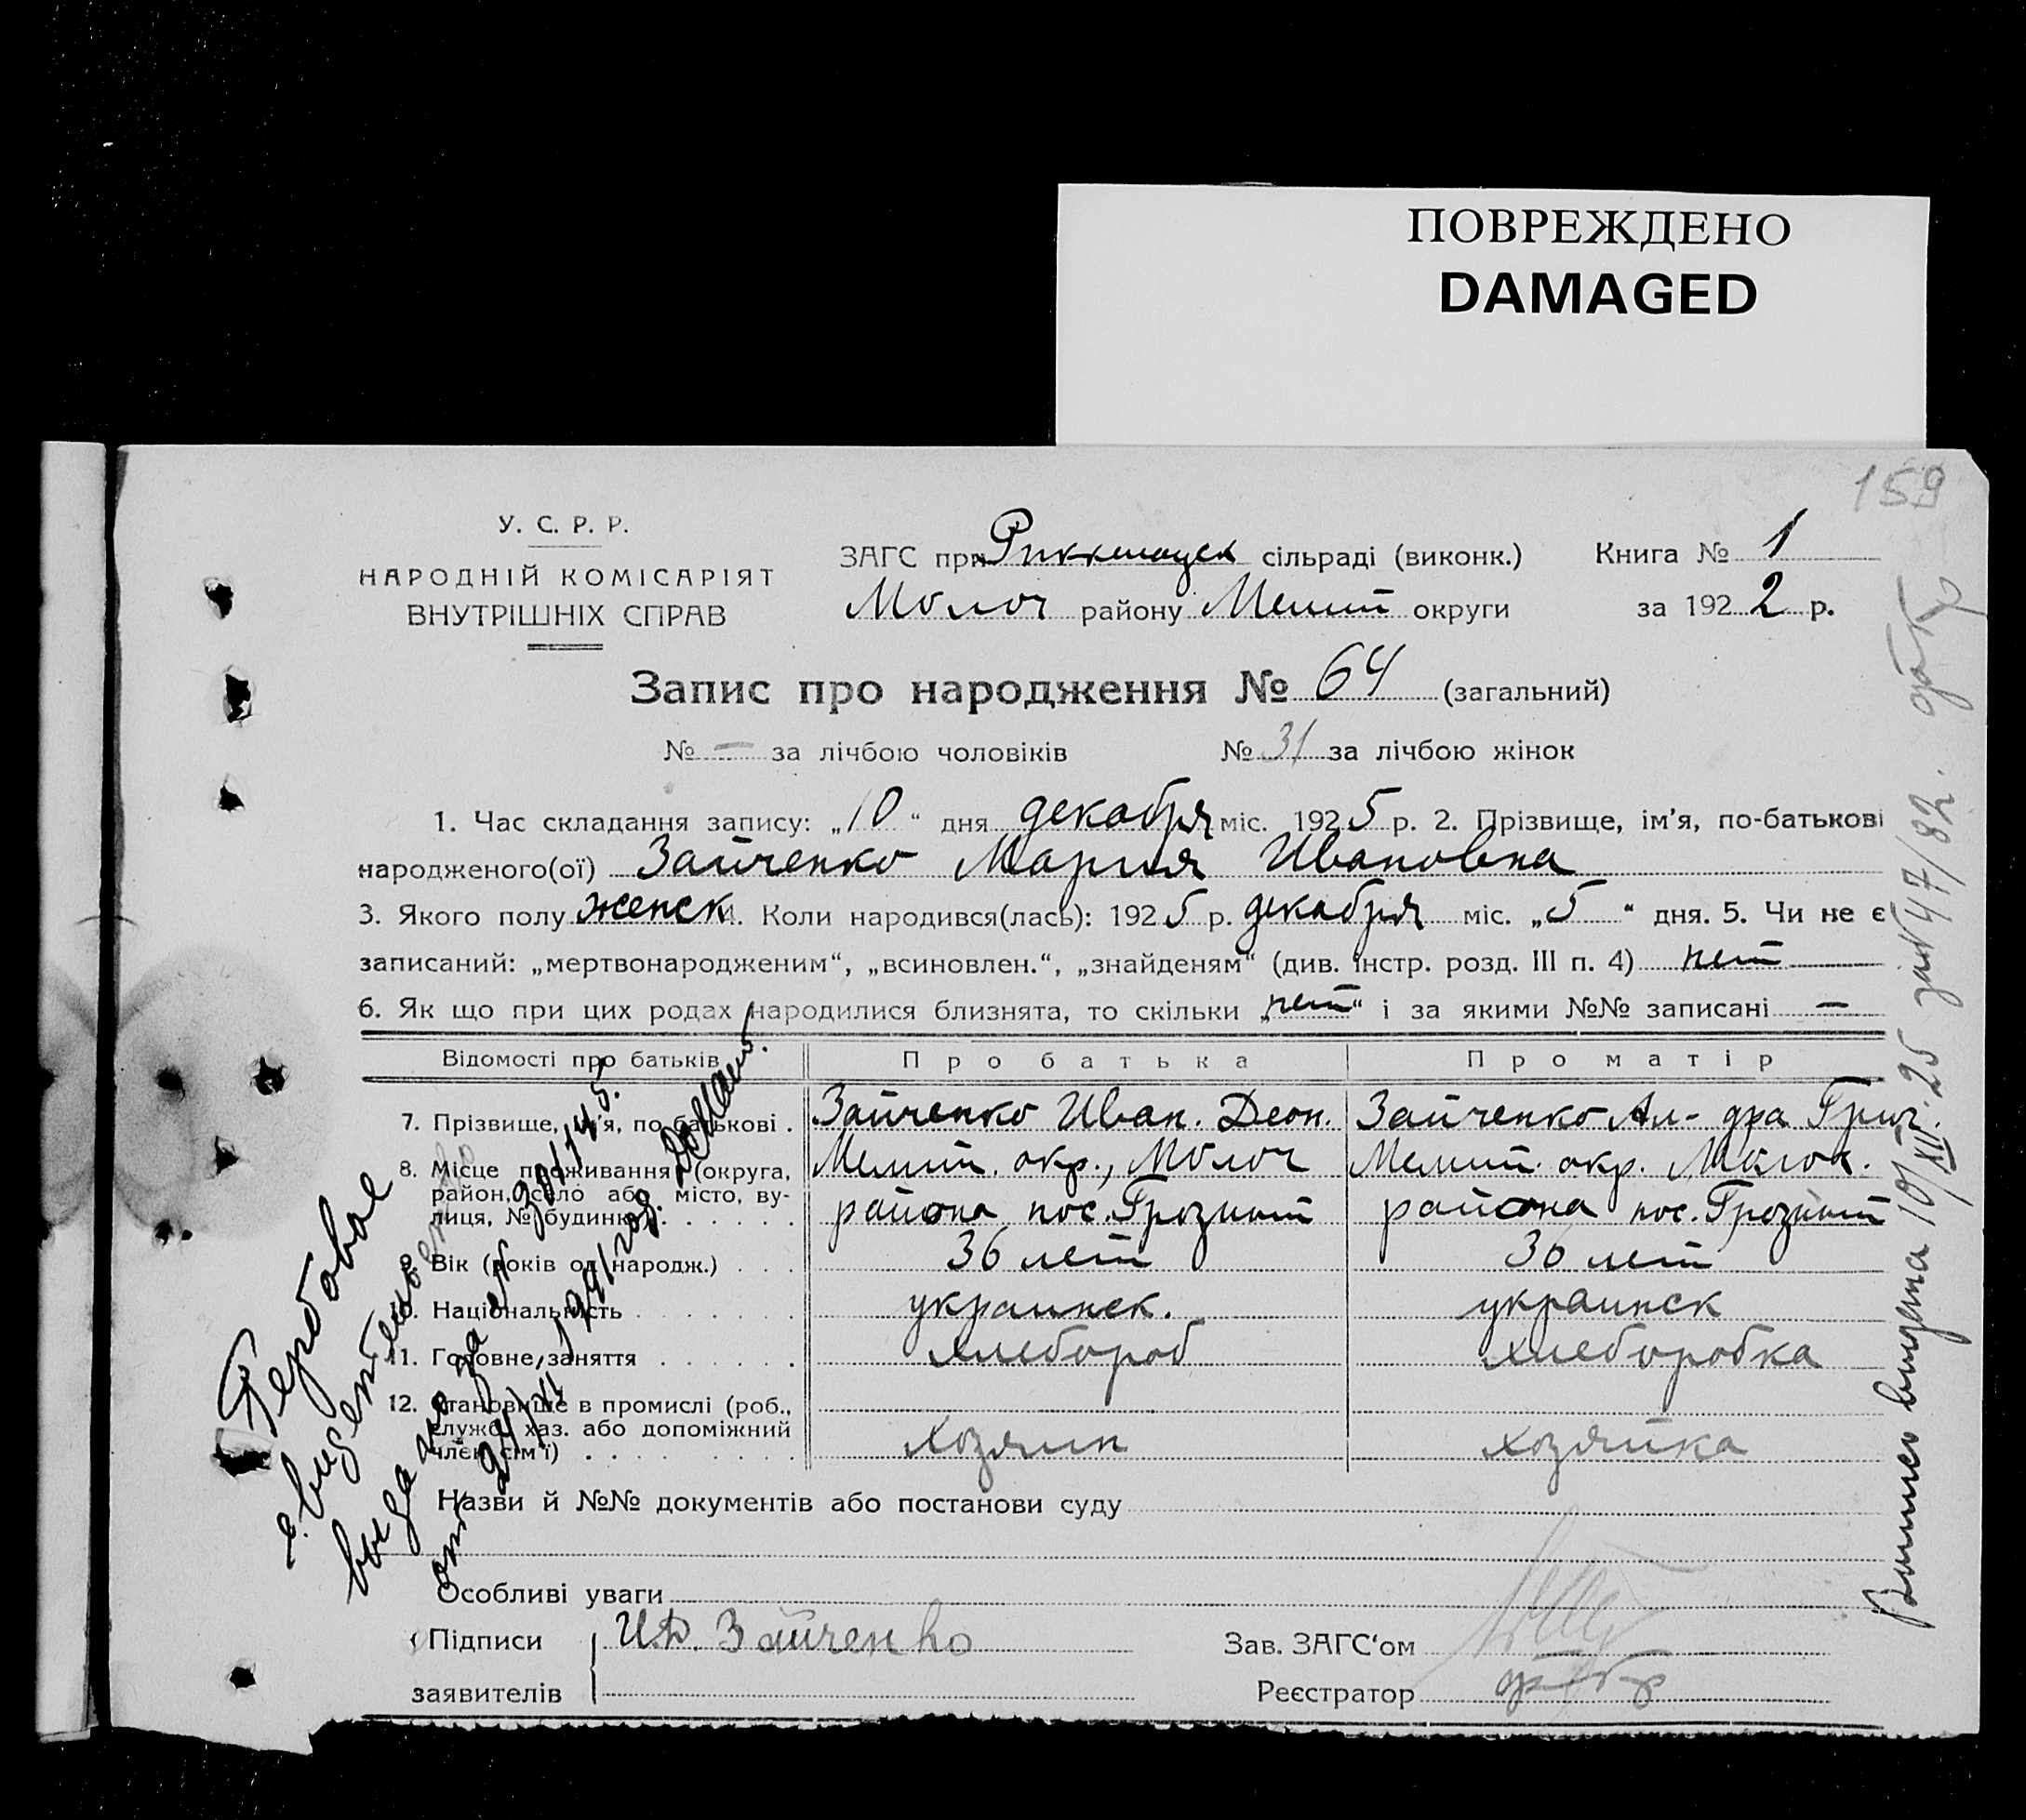 ПОВРЕЖДЕНО
DAMAGED
159
У. С. Р. Р.
НАРОДНІЙ КОМІСАРІЯТ
ВНУТРІШНІХ СПРАВ
ЗАГС при сільраді (виконк.)
Молоч району Мелит округи
Книга № 1
за 1922 р.
Запис про народження № 64 (загальний)
№ — за лічбою чоловіків № 31 за лічбою жінок
1. Час складання запису: „10“ дня декабря міс. 1925 р. 2. Прізвище, ім'я, по-батькові
народженого(ої) Зайченко Мария Ивановна
3. Якого полу женск 4. Коли народився(лась): 1925 р. декабря міс. „5“ дня. 5. Чи не є
записаний: „мертвонародженим“, „всиновлен.“, „знайденям“ (див. інстр. розд. III п. 4) нет
6. Як що при цих родах народилися близнята, то скільки „нет“ і за якими №№ записані —
Відомості про батьків Про батька Про матір
7. Прізвище, ім'я, по батькові . Зайченко Иван. Деон. Зайченко Ал-дра Григ.
8. Місце проживання (округа, Мелит. окр., Молоч Мелит. окр. Молоч.
район, село або місто, ву- района пос. Грозный района пос. Грозный
лиця, № будинку) . . . . . .
9. Вік (років од народж.) . . . 36 лет 36 лет
10. Національність . . . . . . . украинск. украинск
11. Головне заняття . . . . . . хлебороб хлеборобка
12. Становище в промислі (роб.,
служб. хаз. або допоміжний хозяин хозяйка
член сім'ї) . . . . . . . . .
Назви й №№ документів або постанови суду
Особливі уваги
Підписи И.Д. Зайченко
заявителів
Зав. ЗАГС'ом
Реєстратор
Гербовое
выдано за №
от 24/XI 1941 год.
Выпись выдана 10/XII. 25 за № 47/82.